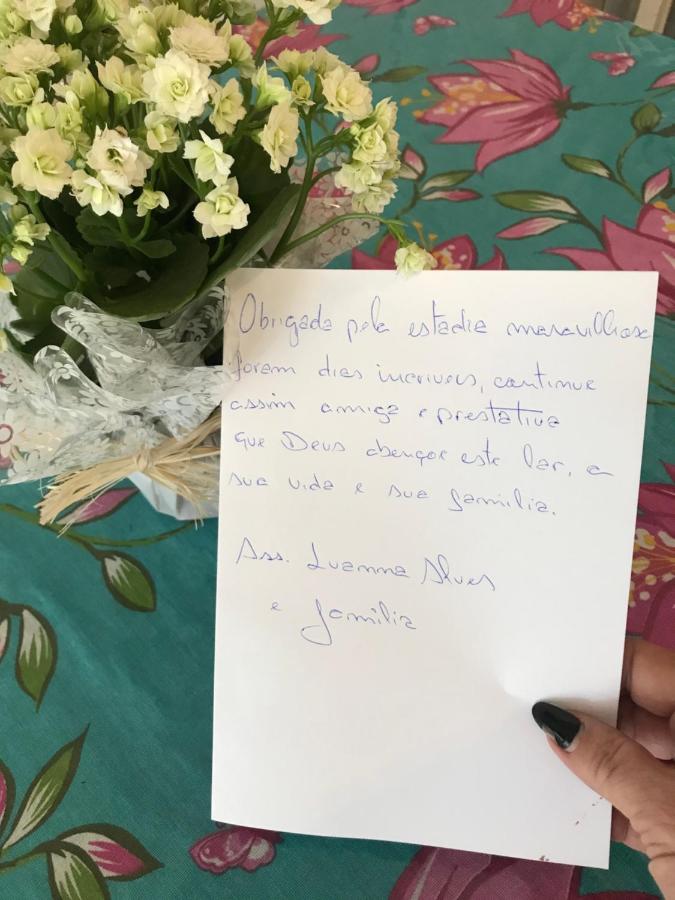 Obrigada pela estadia maravilhosa
foram dias incriveis, continue
assim amiga e prestativa
que Deus abençoe este lar, a
sua vida e sua familia.
Ass. Luanna Alves
e familia